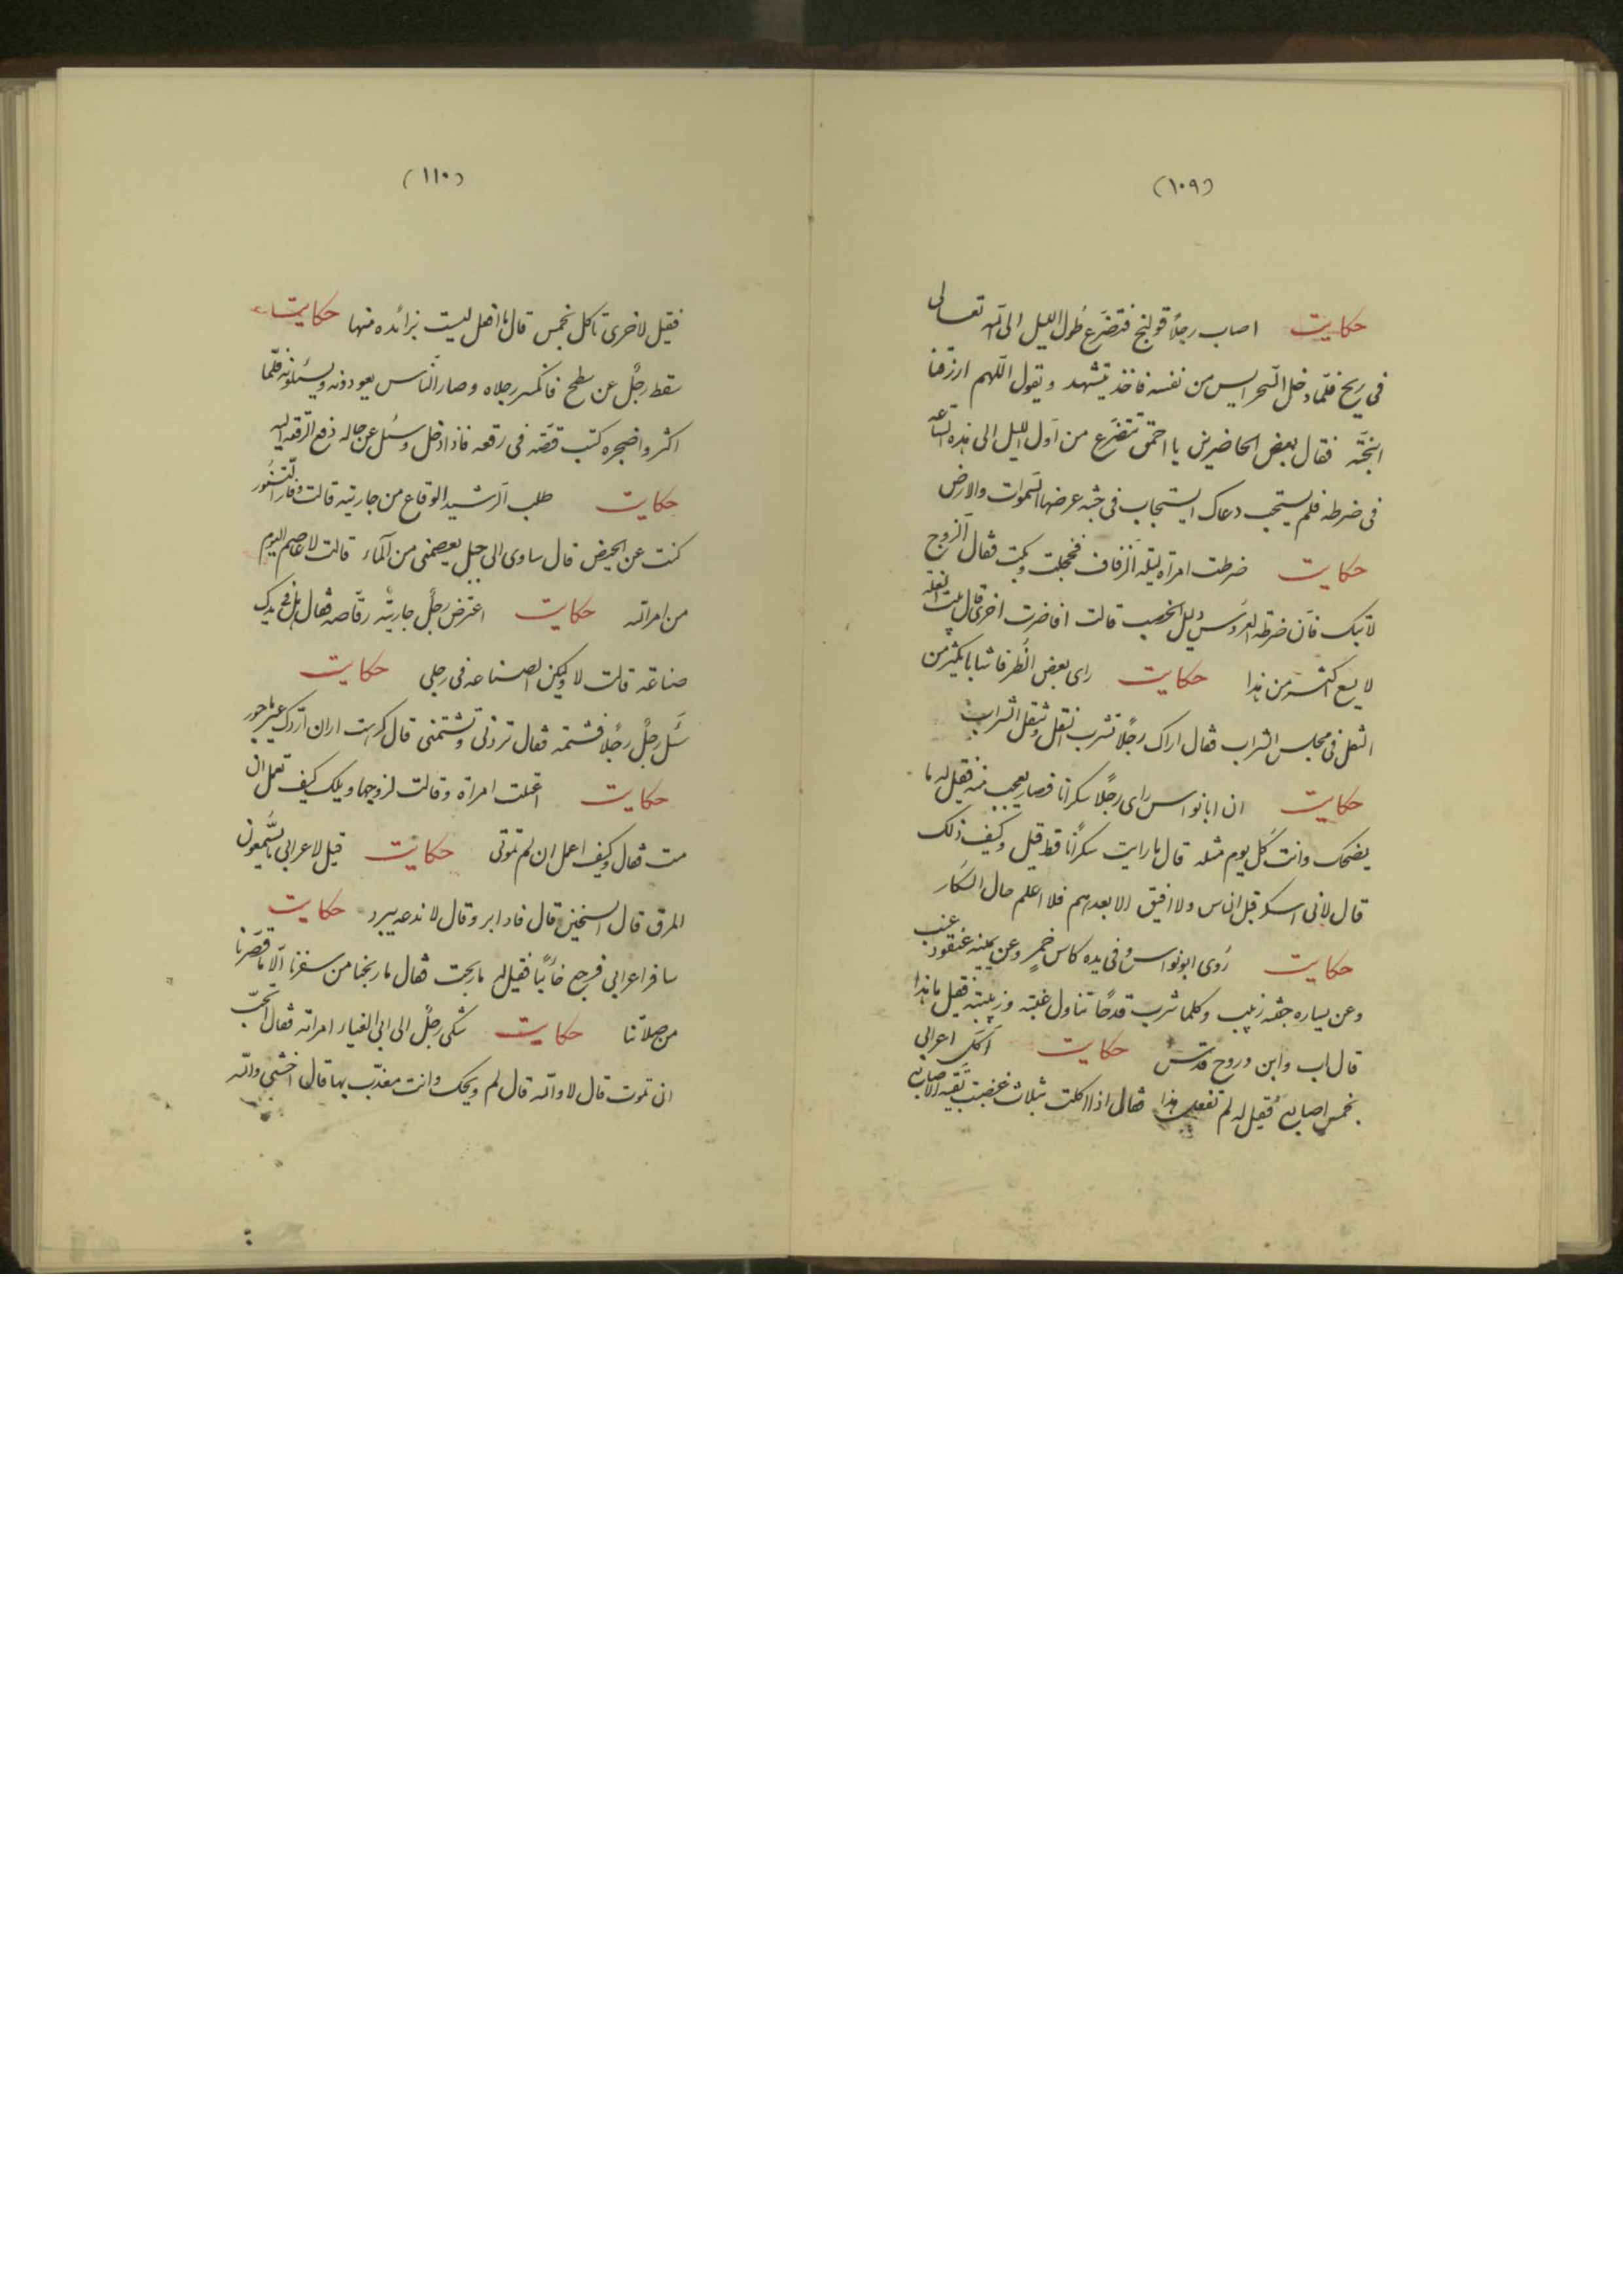 (١٠٩)
حکایت اصاب رجلاً قولنج فتضرع طول اللیل الی الله تعالی
فی ریح فلمّا دخل السّحر ایس من نفسه فاخذ یتشهد و یقول اللّهم ارزقنا
الجنّة فقال بعض الحاضرین یا احمق تتضرع من اول اللیل الی هذه الساعة
فی ضرطه فلم یستجب دعاک ایستجاب فی جنّه عرضها السموات والارض
حکایت ضرطت امراه لیلة الزفاف فخجلت و بکت فقال الزوج
لاتبک فان ضرطة العروس دلیل الخصب قالت افاضرت اخری قال بیت الغله
لا یسع اکثر من هذا حکایت رای بعض الظرفا شابا یکثر من
النقل فی مجلس الشراب فقال اراک رجلاً تشرب النقل و تنقل الشراب
حکایت ان ابانواس رای رجلاً سکرانا فصار یعجب منه فقیل له ما
یضحک وانت کل یوم مثله قال ما رایت سکرانا قط قیل و کیف ذلک
قال لانی اسکر قبل الناس ولا افیق الا بعدهم فلا اعلم حال السکار
حکایت رُوی ابو نواس و فی یده کاس خمر وعن یمینه عنقود عنب
وعن یساره جفنه زبیب و کلما شرب قدحاً تناول عنبته وزبیبته فقیل ما هذا
قال اب وابن وروح قدس حکایت اکل اعرابی
بخمس اصابع فقیل له لم تفعل هذا فقال اذا اکلت بثلاث غضبت بقیه الاصابع
(١١٠)
فقیل لاخری تاکل بخمس قال ما افعل لیست بزائده منها حکایت
سقط رجلٌ عن سطح فانکسر رجلاه وصار الناس یعودونه ویسئلونه فلمّا
اکثروا ضجره کتب قصّه فی رقعه فاذا دخل وسئل عن حاله دفع الرقعه الیه
حکایت طلب الرشید الوقاع من جاریته قالت وفار التّنّور
کنت عن الحیض قال ساوی الی جبل یعصمنی من الماء قالت لا عاصم الیوم
من امر الله حکایت اعترض رجلٌ جاریة رقّاصه فقال هل فی یدک
صناعه قالت لا ولیکن الصناعه فی رجلی حکایت
سَئل رجلٌ رجُلاً فشتمه فقال تردنی و تشتمنی قال کرهت ان اردک غیر ماجور
حکایت اعتلت امرأة وقالت لزوجها ویلک کیف تعمل ان
مت فقال وکیف اعمل ان لم تموتی حکایت قیل لاعرابی ما تسّمون
المرق قال السخین قال فاذا برد قال لا ندعه یبرد حکایت
سافر اعرابی فرجع خائبًا فقیل له ما ربحت فقال ما ربحنا من سفرنا الّا ما قصّرنا
من صلاتنا حکایت شکی رجلٌ الی ابی العیناء امراته فقال اتحبّ
ان تموت قال لا والله قال لم ویحک وانت معذّب بها قال اخشی والله